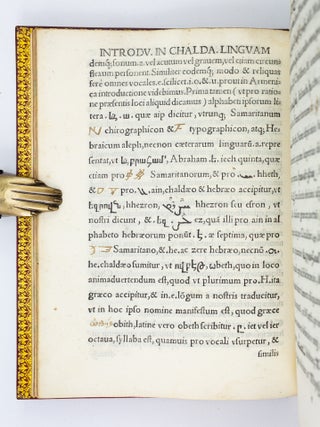 INTRODV. IN CHALDA. LINGVAM
demq; sonum .a. vel acutum vel gravem, vel etiam circum
flexum personent. Similiter eodemq; modo & reliquas
ferè omnes vocales .e. scilicet .i. o. & .u. prout in Armeni
ca introductione videbimus. Prima tamen (vt pro ratio
ne præsentis loci aliquid dicamus) alphabeti ipsorum lit
tera. quæ aip dicitur, virumq; Samaritanum
chirographicon & typographicon, atq; He
braicum aleph, necnon cæterarum linguarū .a. repræ
sentat, vt Abraham. tech quinta, quæ
etiam pro Samaritanorum, & pro
& pro ain, chaldæo & hebræo accipitur, vt
hhezron, hhezron seu esron, vt
nostri dicunt, & ez, quā illi pro ain in al
phabeto hebræorum ponūt. æ septima, quæ pro
Samaritano, & .he. ac zere hebræo, necnō
.he. chaldæo sumitur, vt obeth, quo in loco
animaduertendum est, quod vt plurimum pro .H. ita
græco accipitur, & in .e. lōgum a nostris traducitur,
vt in hoc ipso nomine manifestum est, quod græce
obith, latine vero obeth scribitur. iet vel ier
octaua, syllaba est, quamuis pro vocali vsurpetur, &
similis